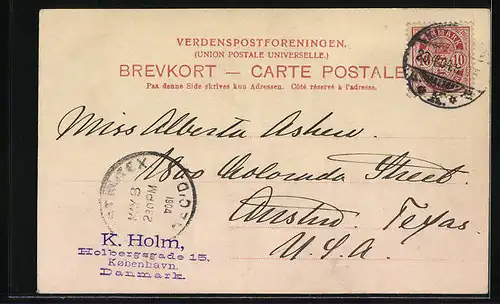 VERDENSPOSTFORENINGEN.
(UNION POSTALE UNIVERSELLE.)
BREVKORT — CARTE POSTALE
Paa denne Side skrives kun Adressen. Côté réservé à l'adresse.
10
Miss Alberta Asher
1800 Colorado Street.
Austin. Texas.
U.S.A.
TEX.
MAY 8
230PM
1904
REC'D
K. Holm,
Holbergsgade 15.
København.
Danmark.